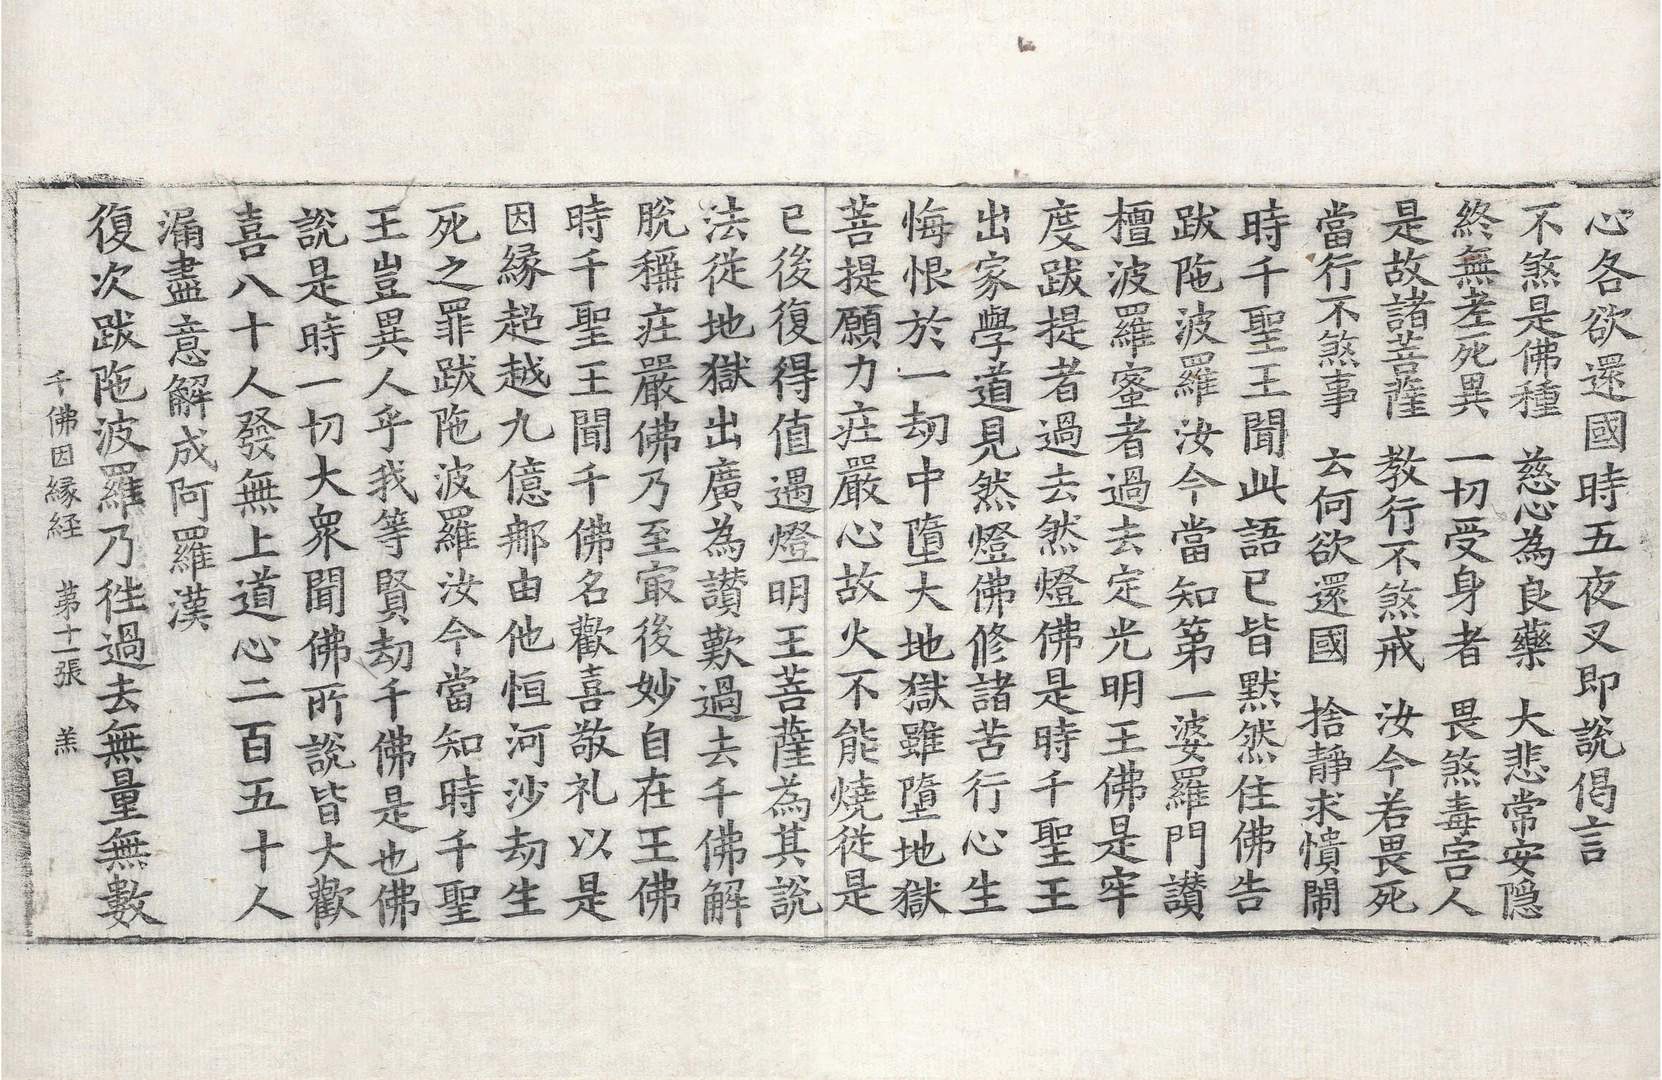 心各欲還國時五夜叉即說偈言
不煞是佛種　慈心為良藥　大悲常安隱
終無老死異　一切受身者　畏煞毒害人
是故諸菩薩　教行不煞戒　汝今若畏死
當行不煞事　云何欲還國　捨靜求憒閙
時千聖王聞此語已皆默然住佛告
跋陁波羅汝今當知第一婆羅門讃
檀波羅蜜者過去定光明王佛是牢
度跋提者過去然燈佛是時千聖王
出家學道見然燈佛修諸苦行心生
悔恨於一劫中墮大地獄雖墮地獄
菩提願力疘嚴心故火不能燒從是
已後復得值遇燈明王菩薩為其說
法從地獄出廣為讃歎過去千佛解
脫稱疘嚴佛乃至㝡後妙自在王佛
時千聖王聞千佛名歡喜敬礼以是
因緣超越九億那由他恒河沙劫生
死之罪跋陁波羅汝今當知時千聖
王豈異人乎我等賢劫千佛是也佛
說是時一切大衆聞佛所說皆大歡
喜八十人發無上道心二百五十人
漏盡意解成阿羅漢
千佛因緣経　第十一張　羔
復次跋陁波羅乃徃過去無量無數